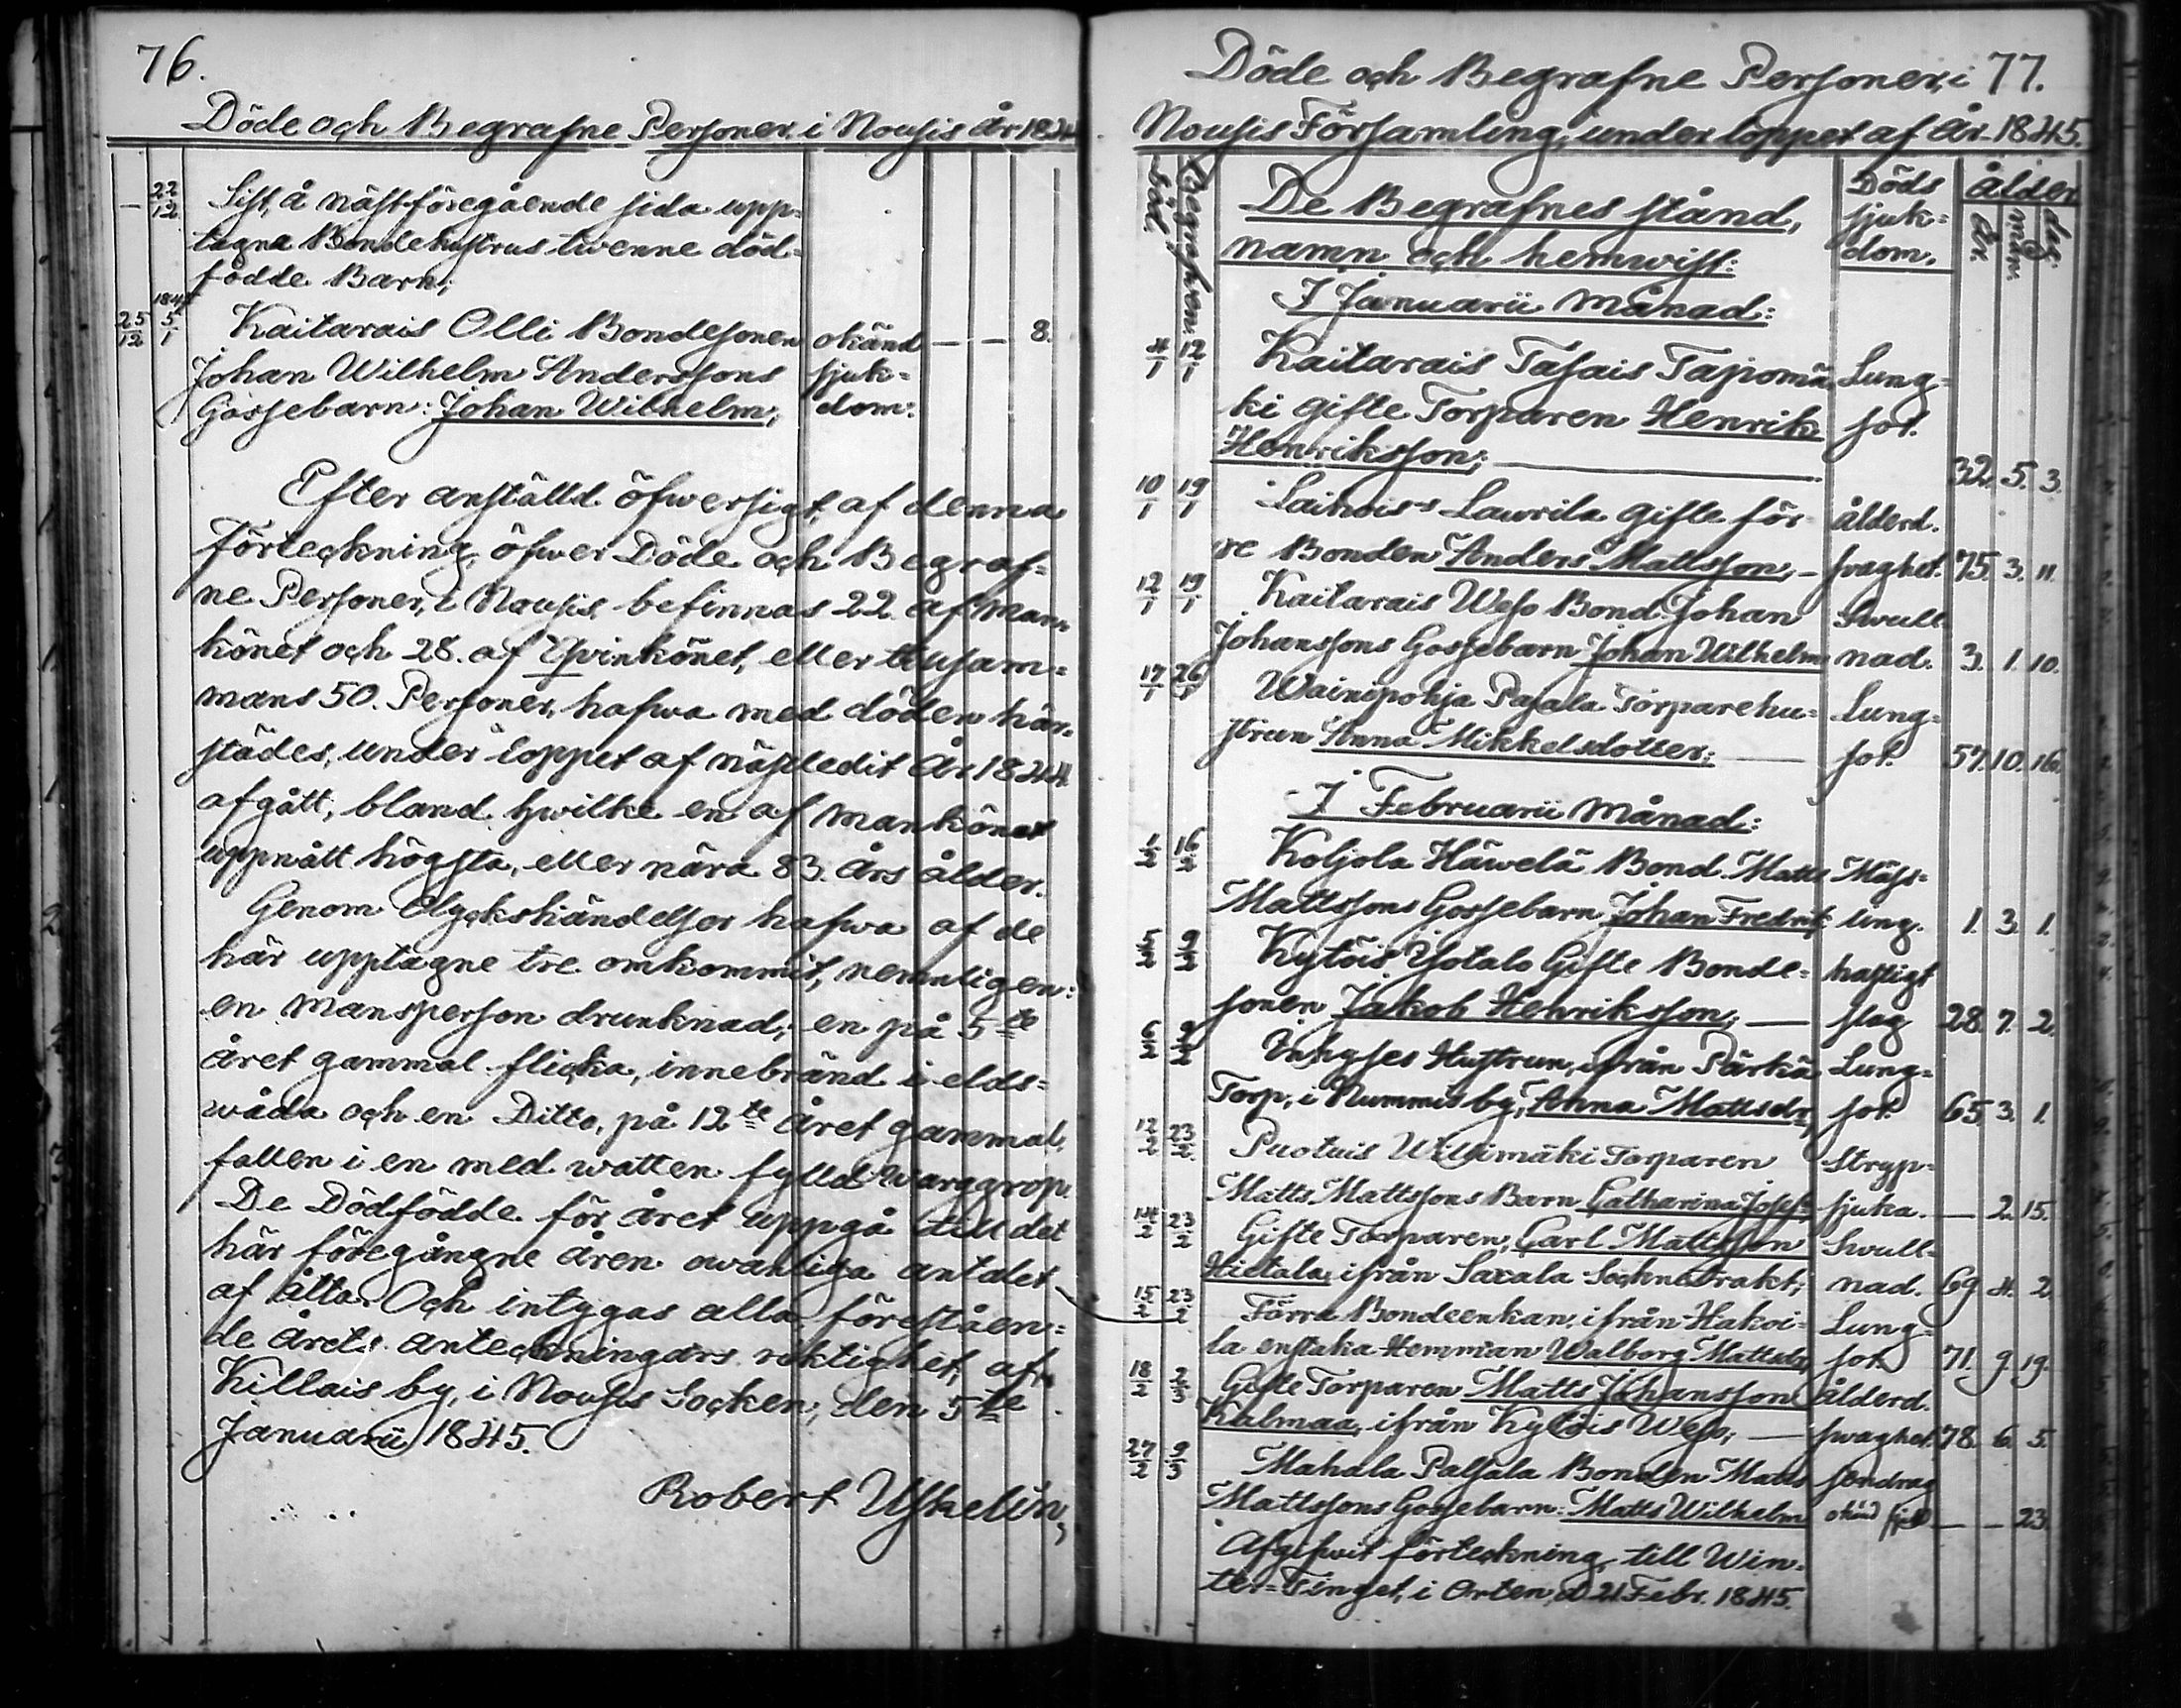 76.
Döde och Begrafne Personer i Nousis År 1844
— 22/12 Sist, å nästföregående sida upp=
tagna Bondehustrus twenne död=
födde Barn;
1845
25/12 5/1 Kaitarais Olli Bondesonen okänd — — 8.
Johan Wilhelm Anderssons sjuk=
Gossebarn: Johan Wilhelm; dom:
Efter anställd öfwersigt, af denna
Förteckning, öfwer Döde och Begraf=
ne Personer, i Nousis, befinnas 22 af Man=
könet och 28. af Qvinkönet, eller tillsam=
mans 50. Personer, hafwa med döden här=
städes, under loppet af nästledit År 1844.
afgått; bland hwilka en af Mankönet
uppnått högsta, eller nära 83. års ålder.
Genom Olyckshändelser hafwa af de
här upptagne tre omkommit, nemligen:
en Mansperson drunknad; en på 5te
året gammal flicka, innebränd i elds=
wåda och en Ditto, på 12te året gammal,
fallen i en med watten fylld warggrop.
De Dödfödde för året uppgå till det
här föregångne åren owanliga antalet
af åtta. Och intygas alla föreståen=
de årets anteckningars riktighet, af
Killais by, i Nousis Socken, den 5te
Januarii 1845.
Robert Uskelin,
Döde och Begrafne Personer, i 77.
Nousis Församling, under loppet af År 1845.
Död. Begrafven. De Begrafnes stånd, Döds ålder
namn och hemwist: sjuk= år. mån. dag.
dom.
I Januarii Månad:
4/1 12/1 Kaitarais Tasais Tapomä Lung=
ki gifte Torparen Henrik sot.
Henriksson; — 32. 5. 3.
10/1 19/1 Lainois Laurila gifte för ålderd.
re Bonden Anders Mattsson, — swaghet. 75. 3. 11.
12/1 19/1 Kaitarais Weso Bond. Johan Swull
Johanssons Gossebarn Johan Wilhelm nad. 3. 1. 10.
17/1 26/1 Wainiopohja Pajala Torparehu= Lung=
strun Anna Mikkelsdotter; — sot. 57. 10. 16.
I Februarii Månad:
1/2 16/2 Koljola Häwelä Bond. Matts Mäss=
Mattssons Gossebarn Johan Fredrik ling. 1. 3. 1.
5/2 9/2 Kytöis Ysotalo Gifte Bonde= hastigt
sonen Jakob Henriksson; — slag 28. 7. 2.
6/2 9/2 Inhyses Hustrun, ifrån Pärkä Lung=
Torp, i Nummis by, Anna Mattsdr, sot. 65. 3. 1.
12/2 23/2 Puotuis Willimäki Torparen Stryp=
Matts Mattssons Barn Catharina Josef. sjuka. — 2. 15.
14/2 23/2 Gifte Torparen, Carl Mattsson Swull=
Hietala, ifrån Saxala Sockne trakt; nad. 69. 4. 2
15/2 23/2 Förra Bondeenkan, ifrån Hakoi= Lung=
la enstaka Hemman Walborg Mattsdr, sot. 71. 9. 19.
18/2 2/3 Gifte Torparen Matts Johansson ålderd.
Kalmaa, ifrån Kytöis Weso; — swaghet. 78. 6. 5.
27/2 9/3 Mahala Paljala Bonden Matts sendrag
Mattssons Gossebarn: Matts Wilhelm okänd sjukd — — 23.
Afgifwit förteckning, till Win=
ter=Tinget, i Orten, d. 21 Febr. 1845.